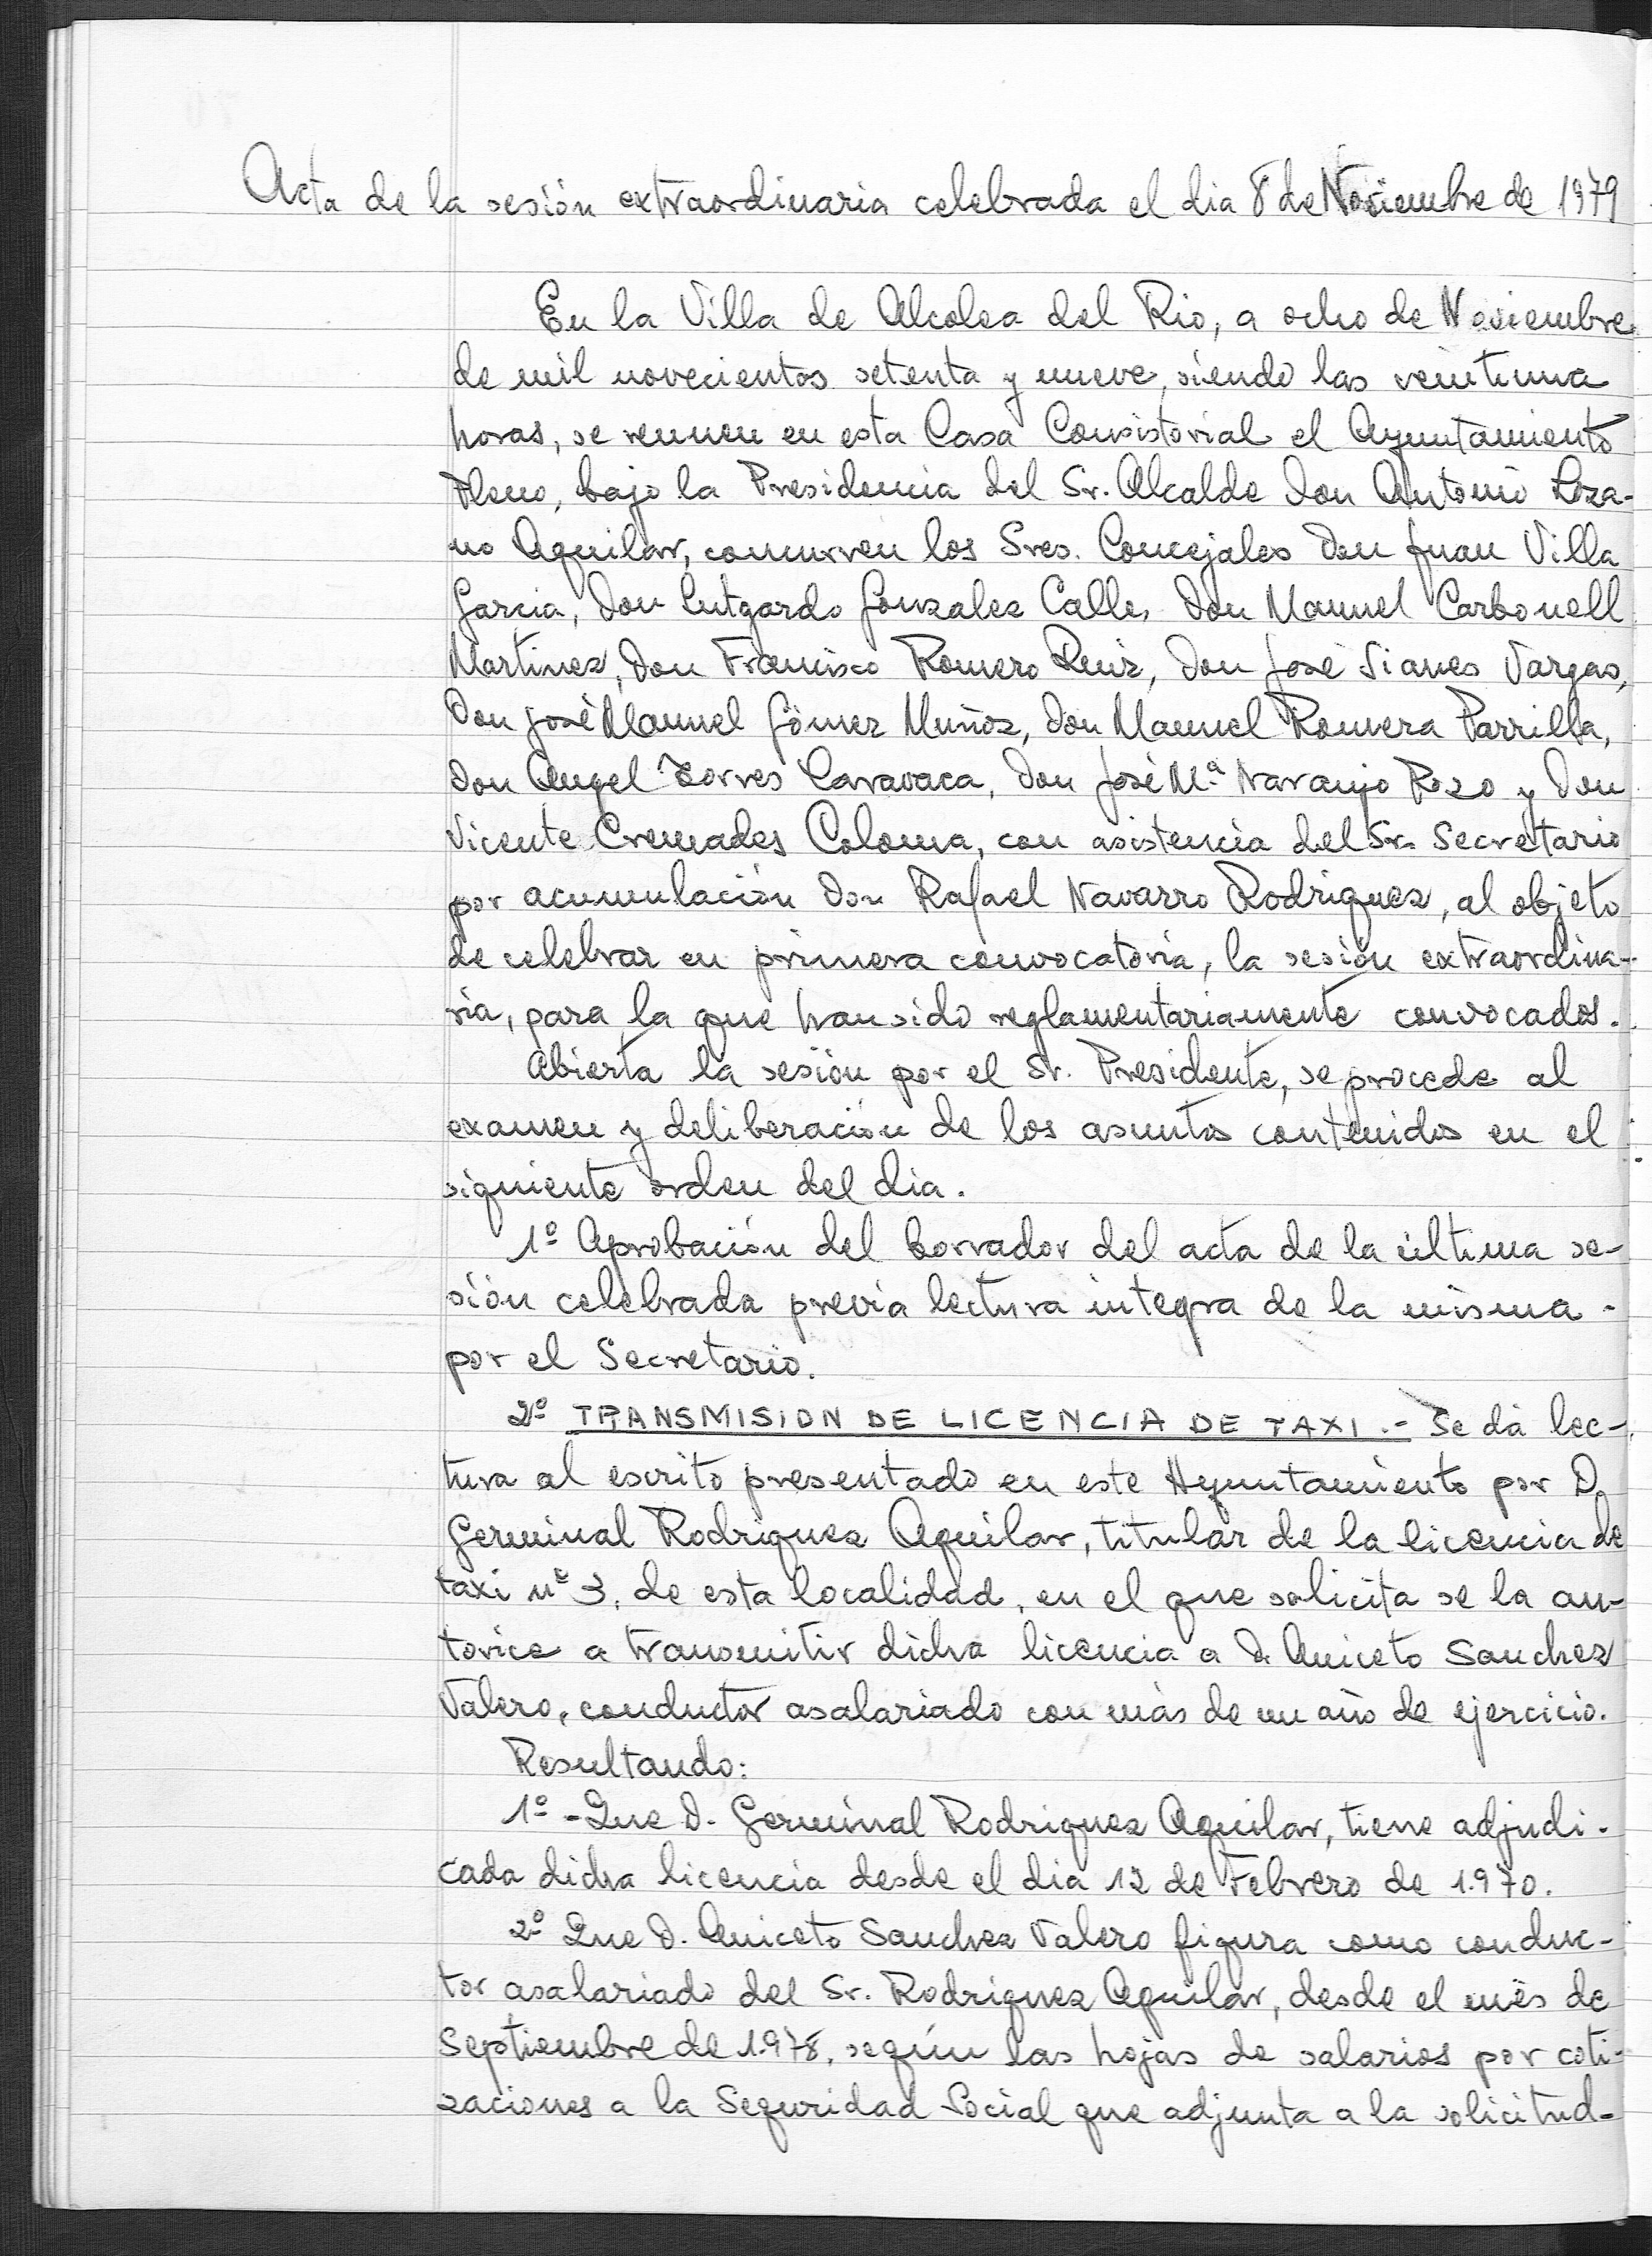 Acta de la sesión extraordinaria celebrada el dia 8 de Noviembre de 1979
En la Villa de Alcolea del Rio, a ocho de Noviembre
de mil novecientos setenta y nueve, siendo las veintiuna
horas, se reunen en esta Casa Consistorial el Ayuntamiento
Pleno, bajo la Presidencia del Sr. Alcalde Don Antonio Loza-
no Aguilar, concurren los Sres. Concejales Don Juan Villa
Garcia, Don Lutgardo Gonzalez Calle, Don Manuel Carbonell
Martinez, Don Francisco Romero Ruiz, Don José Sianes Vargas,
Don José Manuel Gómez Muñoz, Don Manuel Romera Parrilla,
Don Angel Torres Caravaca, Don José Mª Naranjo Rozo y Don
Vicente Cremades Coloma, con asistencia del Sr. Secretario
por acumulación Don Rafael Navarro Rodriguez, al objeto
de celebrar en primera convocatoria, la sesión extraordina-
ria, para la que han sido reglamentariamente convocados.
Abierta la sesión por el Sr. Presidente, se procede al
examen y deliberación de los asuntos contenidos en el
siguiente orden del dia.
1º Aprobación del borrador del acta de la última se-
sión celebrada previa lectura integra de la misma -
por el Secretario.
2º TRANSMISION DE LICENCIA DE TAXI.- Se dá lec-
tura al escrito presentado en este Ayuntamiento por D.
Germinal Rodriguez Aguilar, titular de la licencia de
taxi nº 3, de esta localidad, en el que solicita se la au-
torice a transmitir dicha licencia a D. Aniceto Sanchez
Valero, conductor asalariado con más de un año de ejercicio.
Resultando:
1º - Que D. Germinal Rodriguez Aguilar, tiene adjudi-
cada dicha licencia desde el dia 12 de Febrero de 1.970.
2º Que D. Aniceto Sanchez Valero figura como conduc-
tor asalariado del Sr. Rodriguez Aguilar, desde el més de
Septiembre de 1.978, según las hojas de salarios por coti-
zaciones a la Seguridad Social que adjunta a la solicitud-